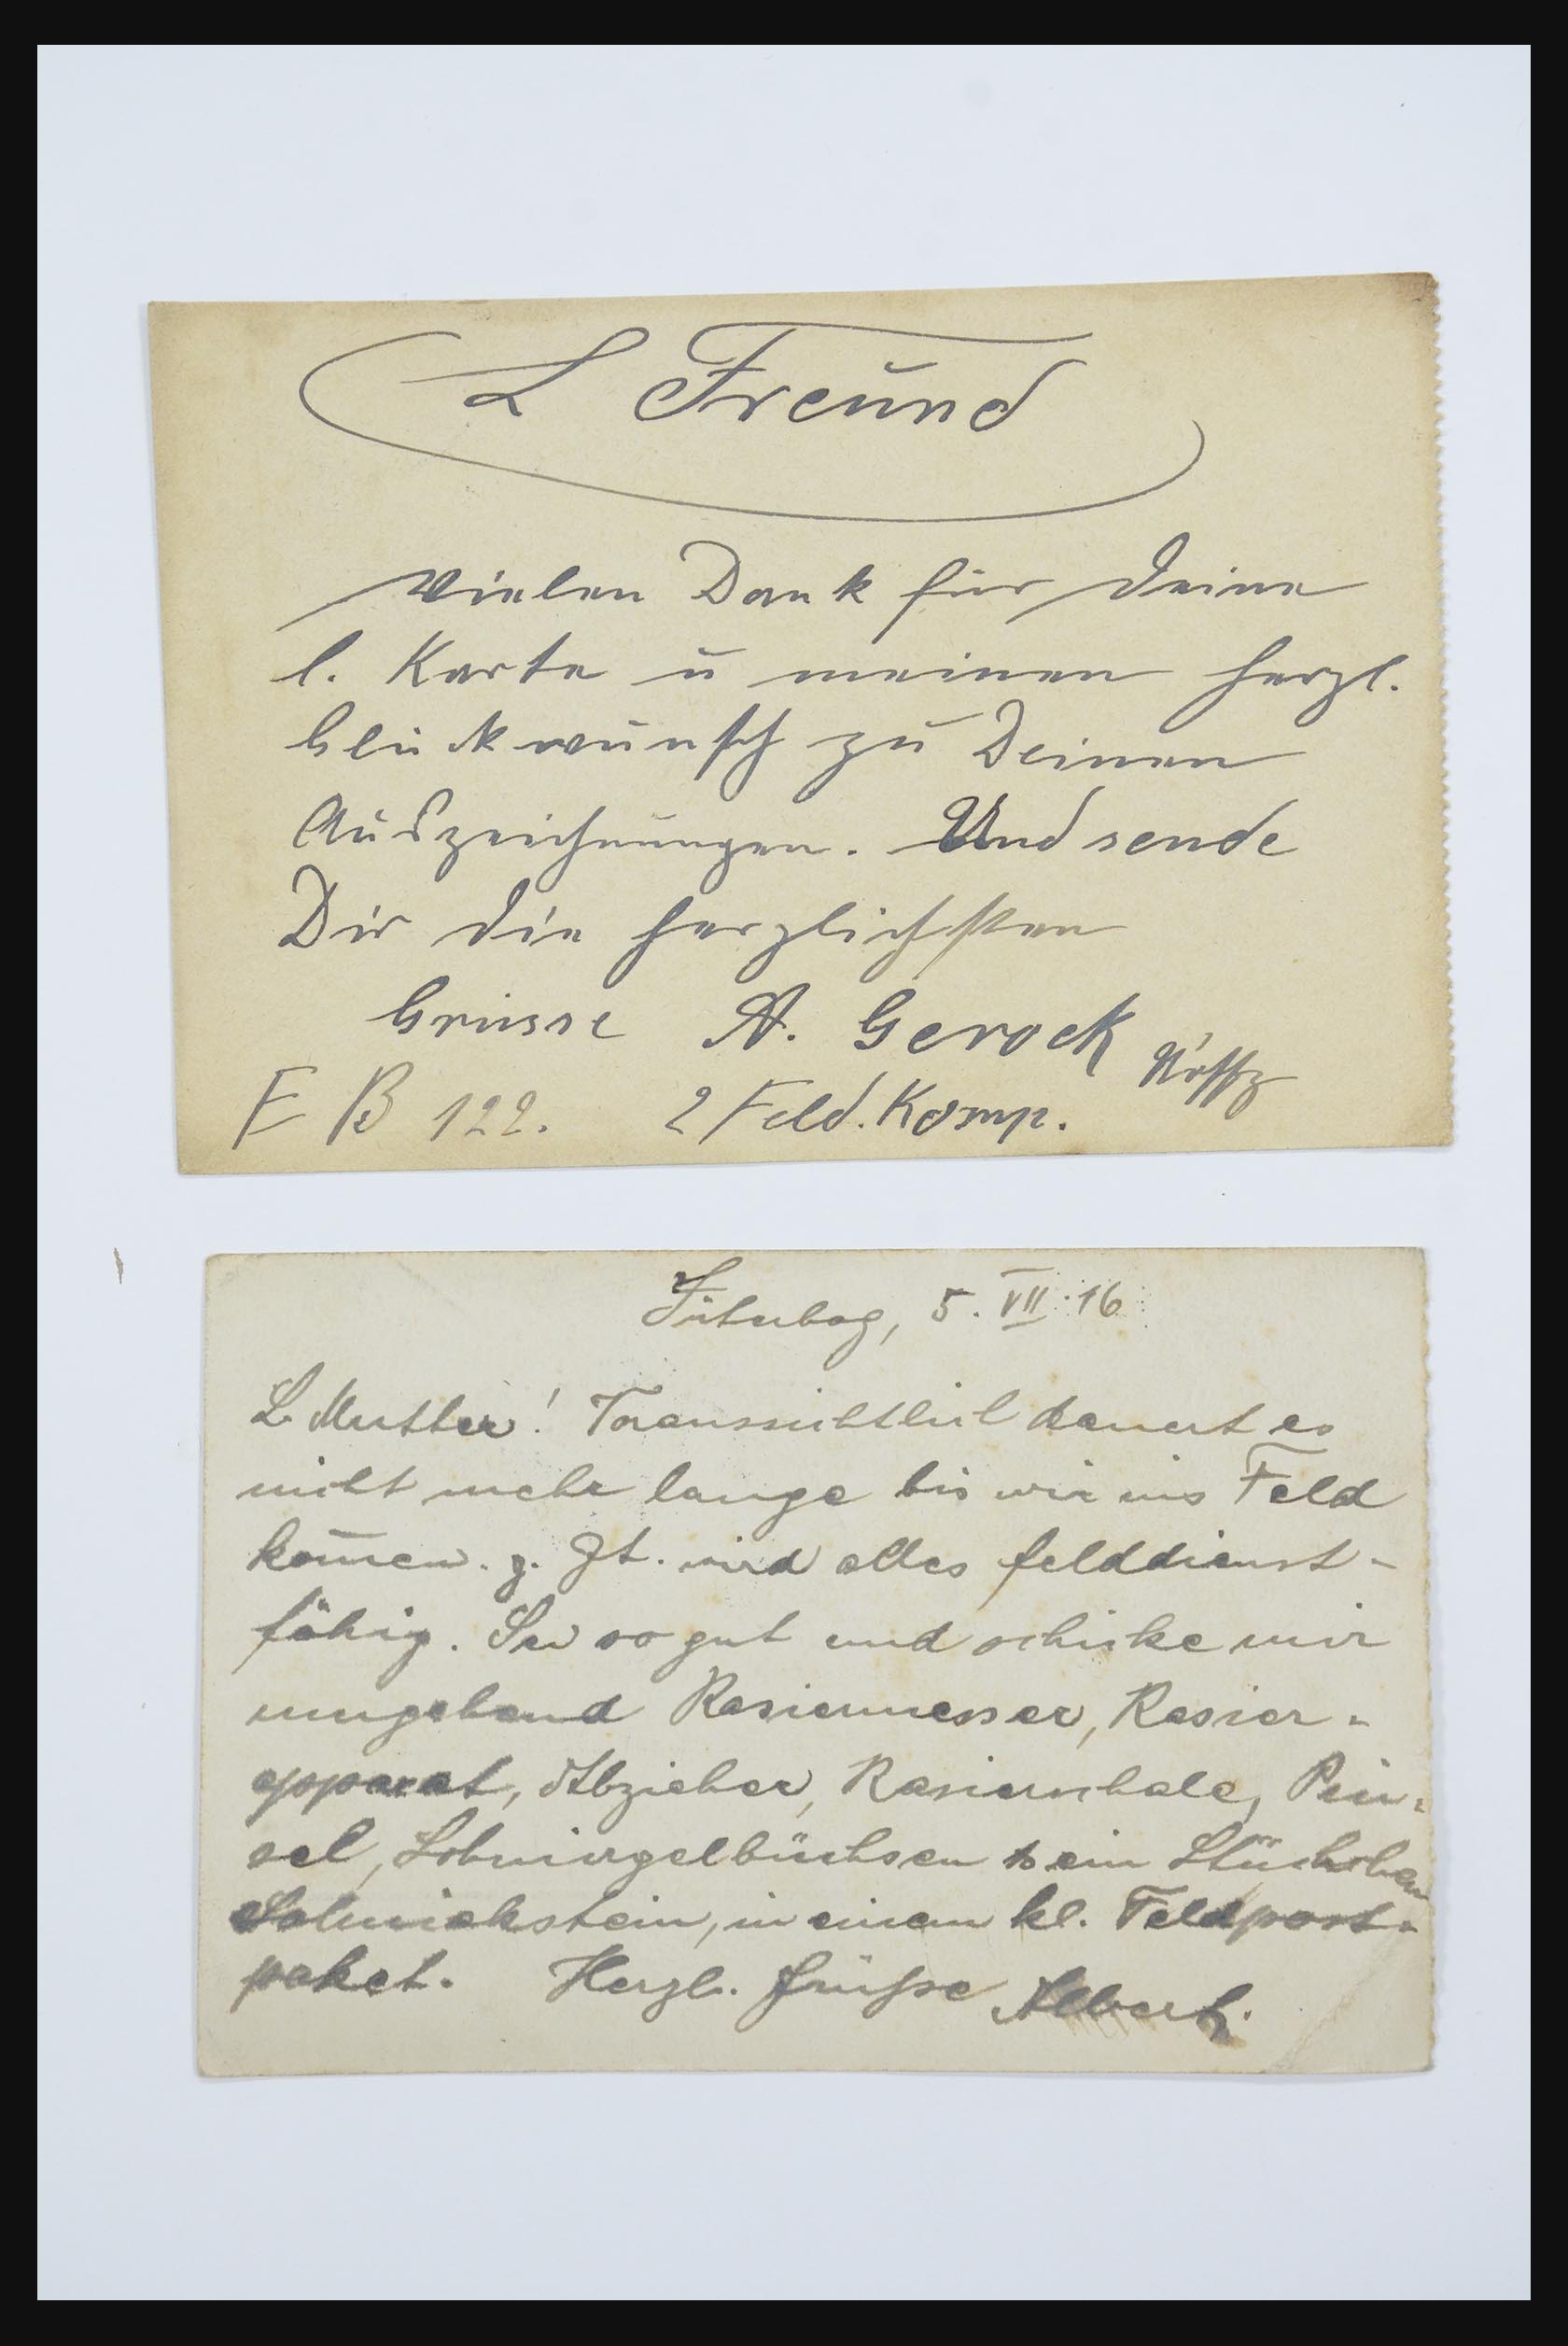 L Freund
Vielen Dank für Deine
l. Karte u meinen herzl.
Glückwunsch zu Deinen
Auszeichnungen. Und sende
Dir die herzlichsten
Grüsse A. Gerock Utffz
E B 122. 2 Feld. Komp.
Jüterbog, 5. VII. 16
L. Mutter! Voraussichtlich dauert es
nicht mehr lange bis wir ins Feld
kom̄en. z. Zt. wird alles felddienst-
fähig. Sei so gut und schicke mir
umgehend Rasiermesser, Rasier-
apparat, Abzieher, Rasierschale, Pin-
sel, Schmirgelbüchsen & ein Stückchen
in einem kl. Feldpost-
paket. Herzl. Grüße Albert.